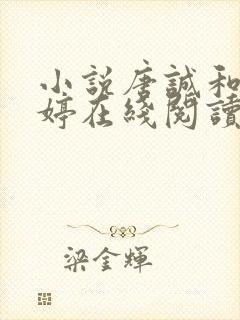 小説唐誠和
婷在綫閱讀
梁金輝